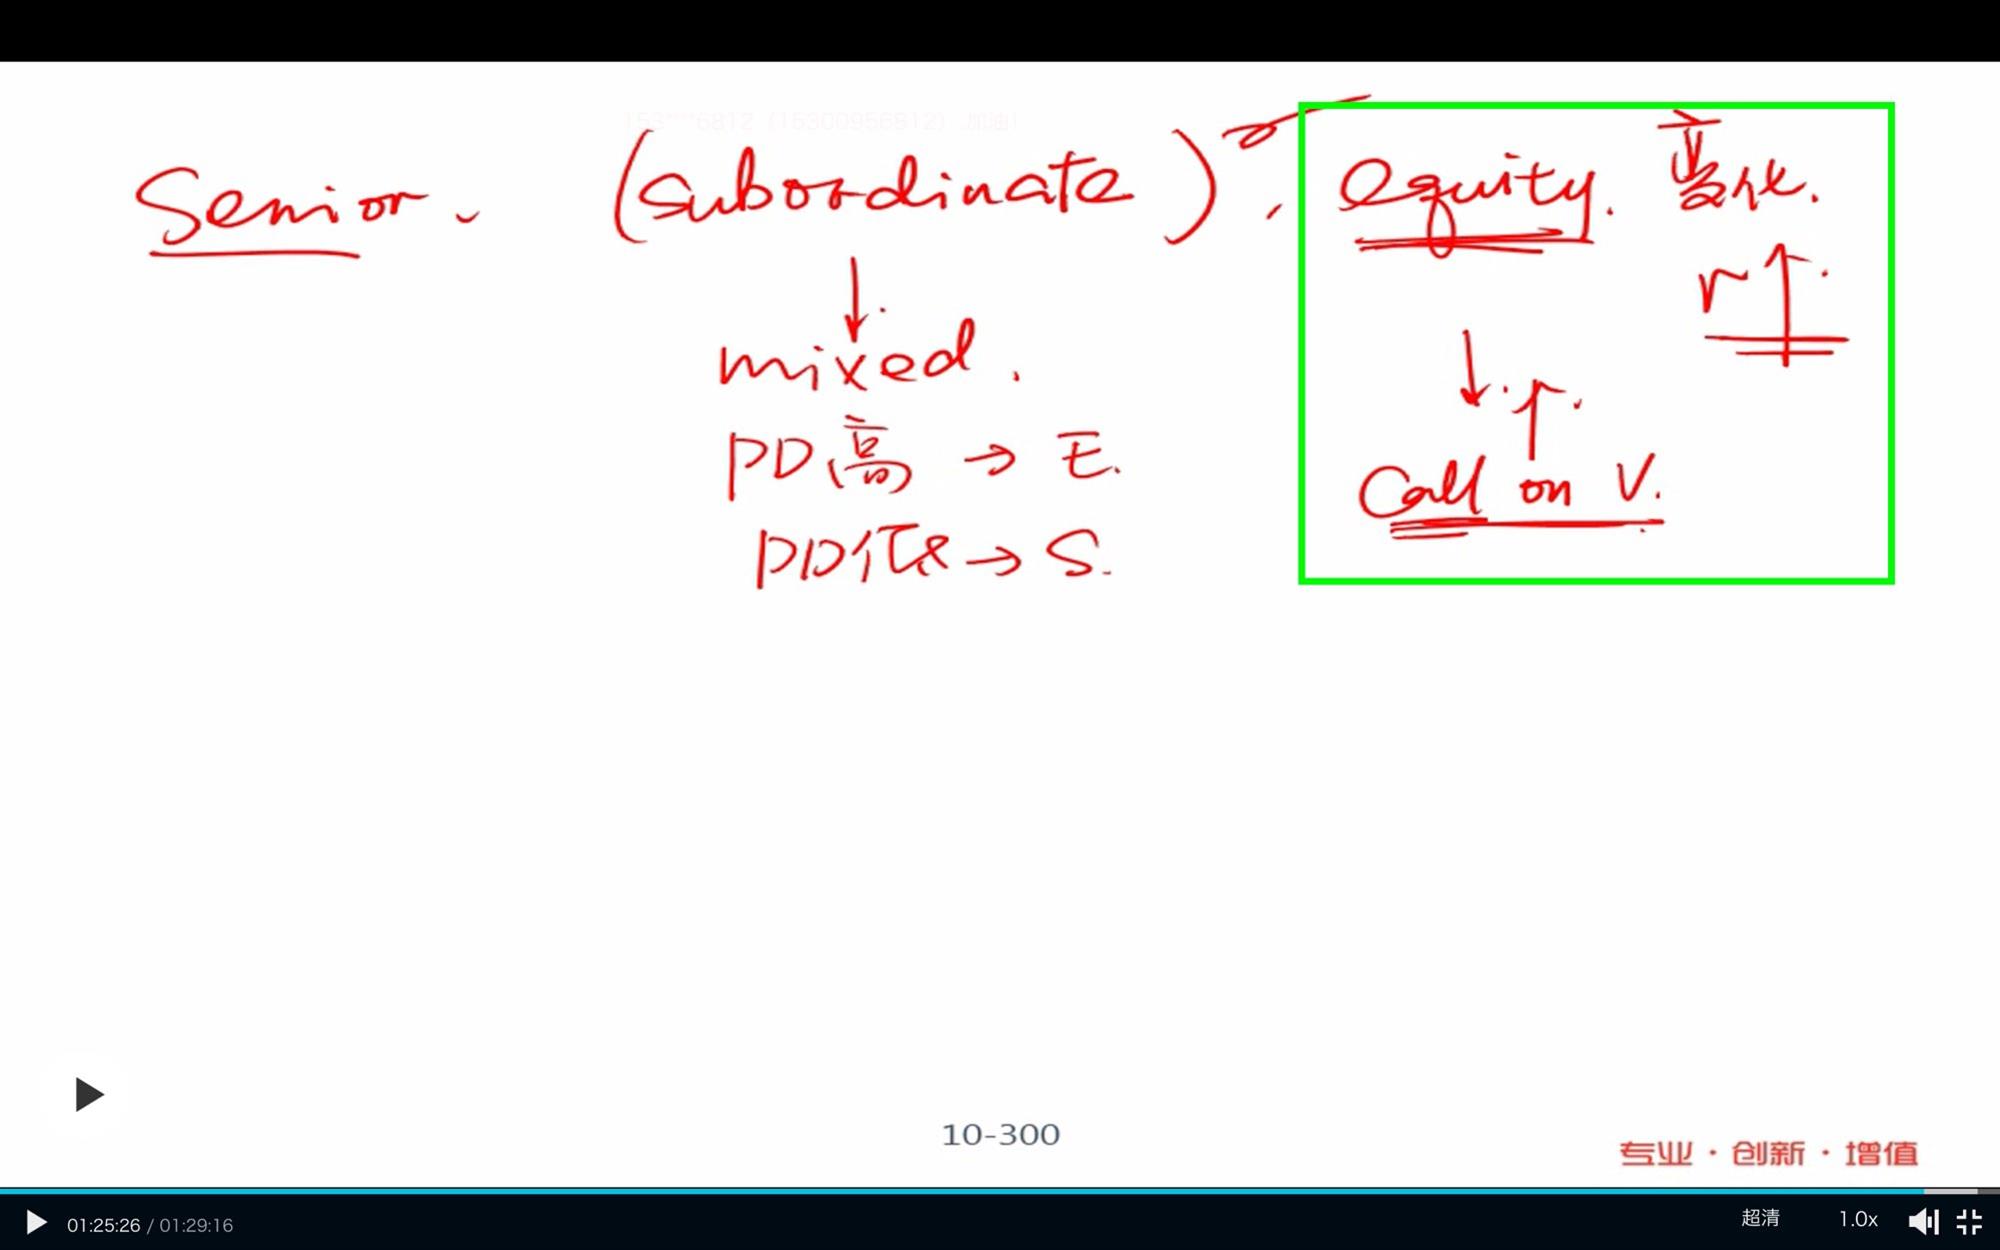 153****6812 (15300956812) ,加油!
Senior. (subordinate), equity. 变化.
r↑.
↓
mixed.
↓ ↑.
PD高 → E.
Call on V.
PD低 → S.
10-300
专业·创新·增值
01:25:26 / 01:29:16
超清 1.0x